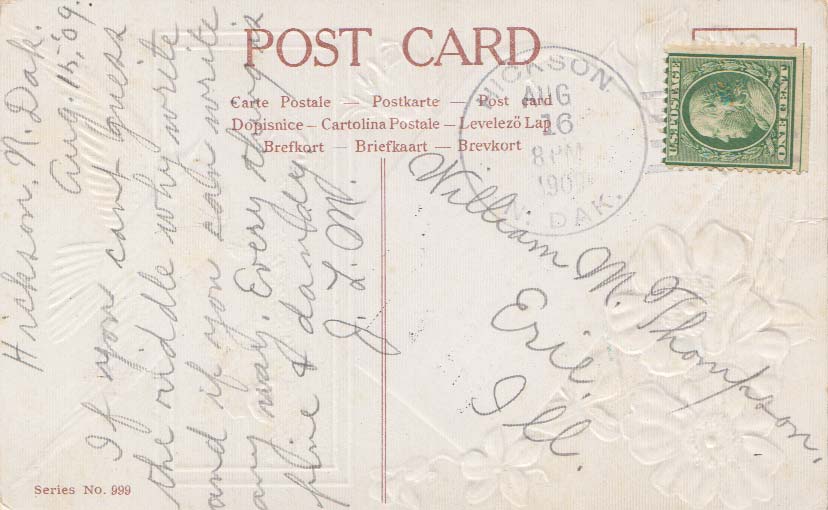 POST CARD
Carte Postale — Postkarte — Post card
Dopisnice – Cartolina Postale – Levelező Lap
Brefkort — Briefkaart — Brevkort
HICKSON
AUG
16
8 PM
1909
N. DAK.
U.S. POSTAGE
Hickson, N. Dak.
Aug. 15, '09.
If you cant guess
the riddle why write
and if you can write
any way. Every thing is
fine & dandy
J. L. M.
William M. Thompson,
Erie.
Ill.
Series No. 999